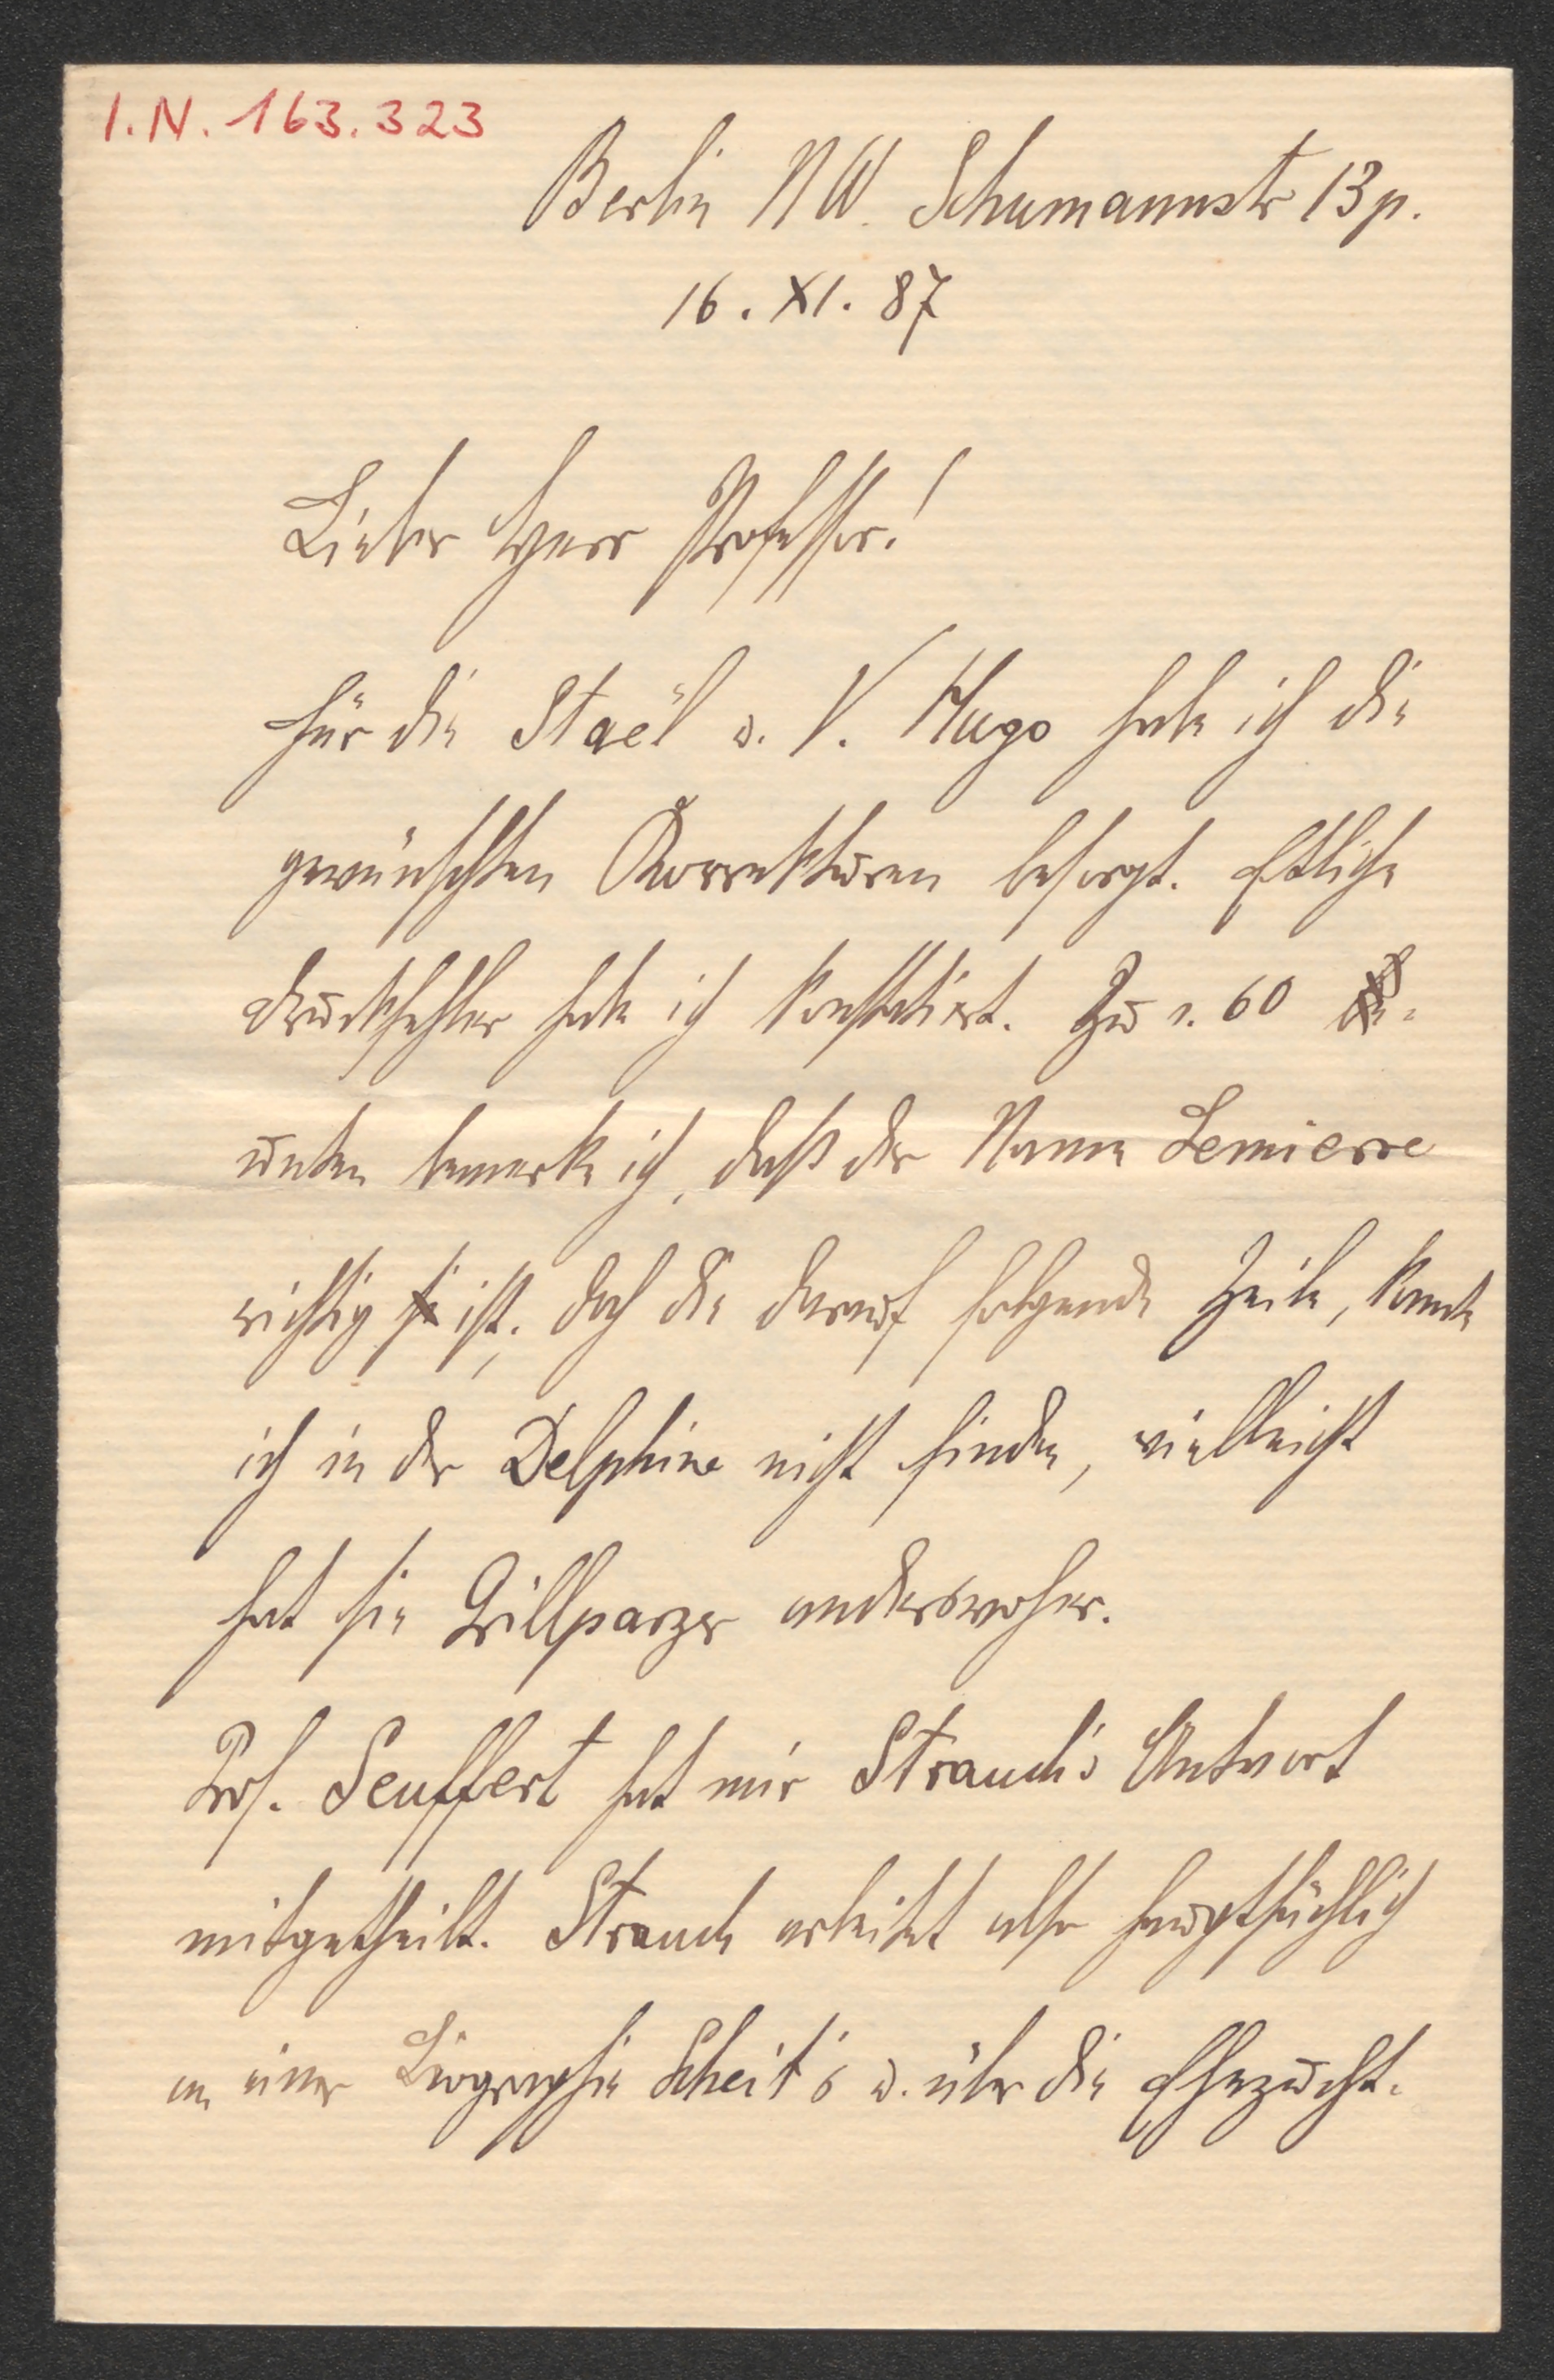 I.N. 163.323
Berlin NW. Schumannstr 13 p.
16. XI. 87
Lieber Herr Professor!
Für die Staël u. V. Hugo habe ich die
gewünschten Korrekturen besorgt. Etliche
Druckfehler habe ich konstatiert. Zu s. 60
unten bemerke ich, daß der Name Lemierre
richtig ist; doch die darauf folgende Zeile, konnte
ich in der Delphine nicht finden, vielleicht
hat sie Grillparzer anderswoher.
Prof. Seuffert hat mir Strauch's Antwort
mitgetheilt. Strauch arbeitet also hauptsächlich
an einer Biographie Scheit's u. über die Ehezucht.